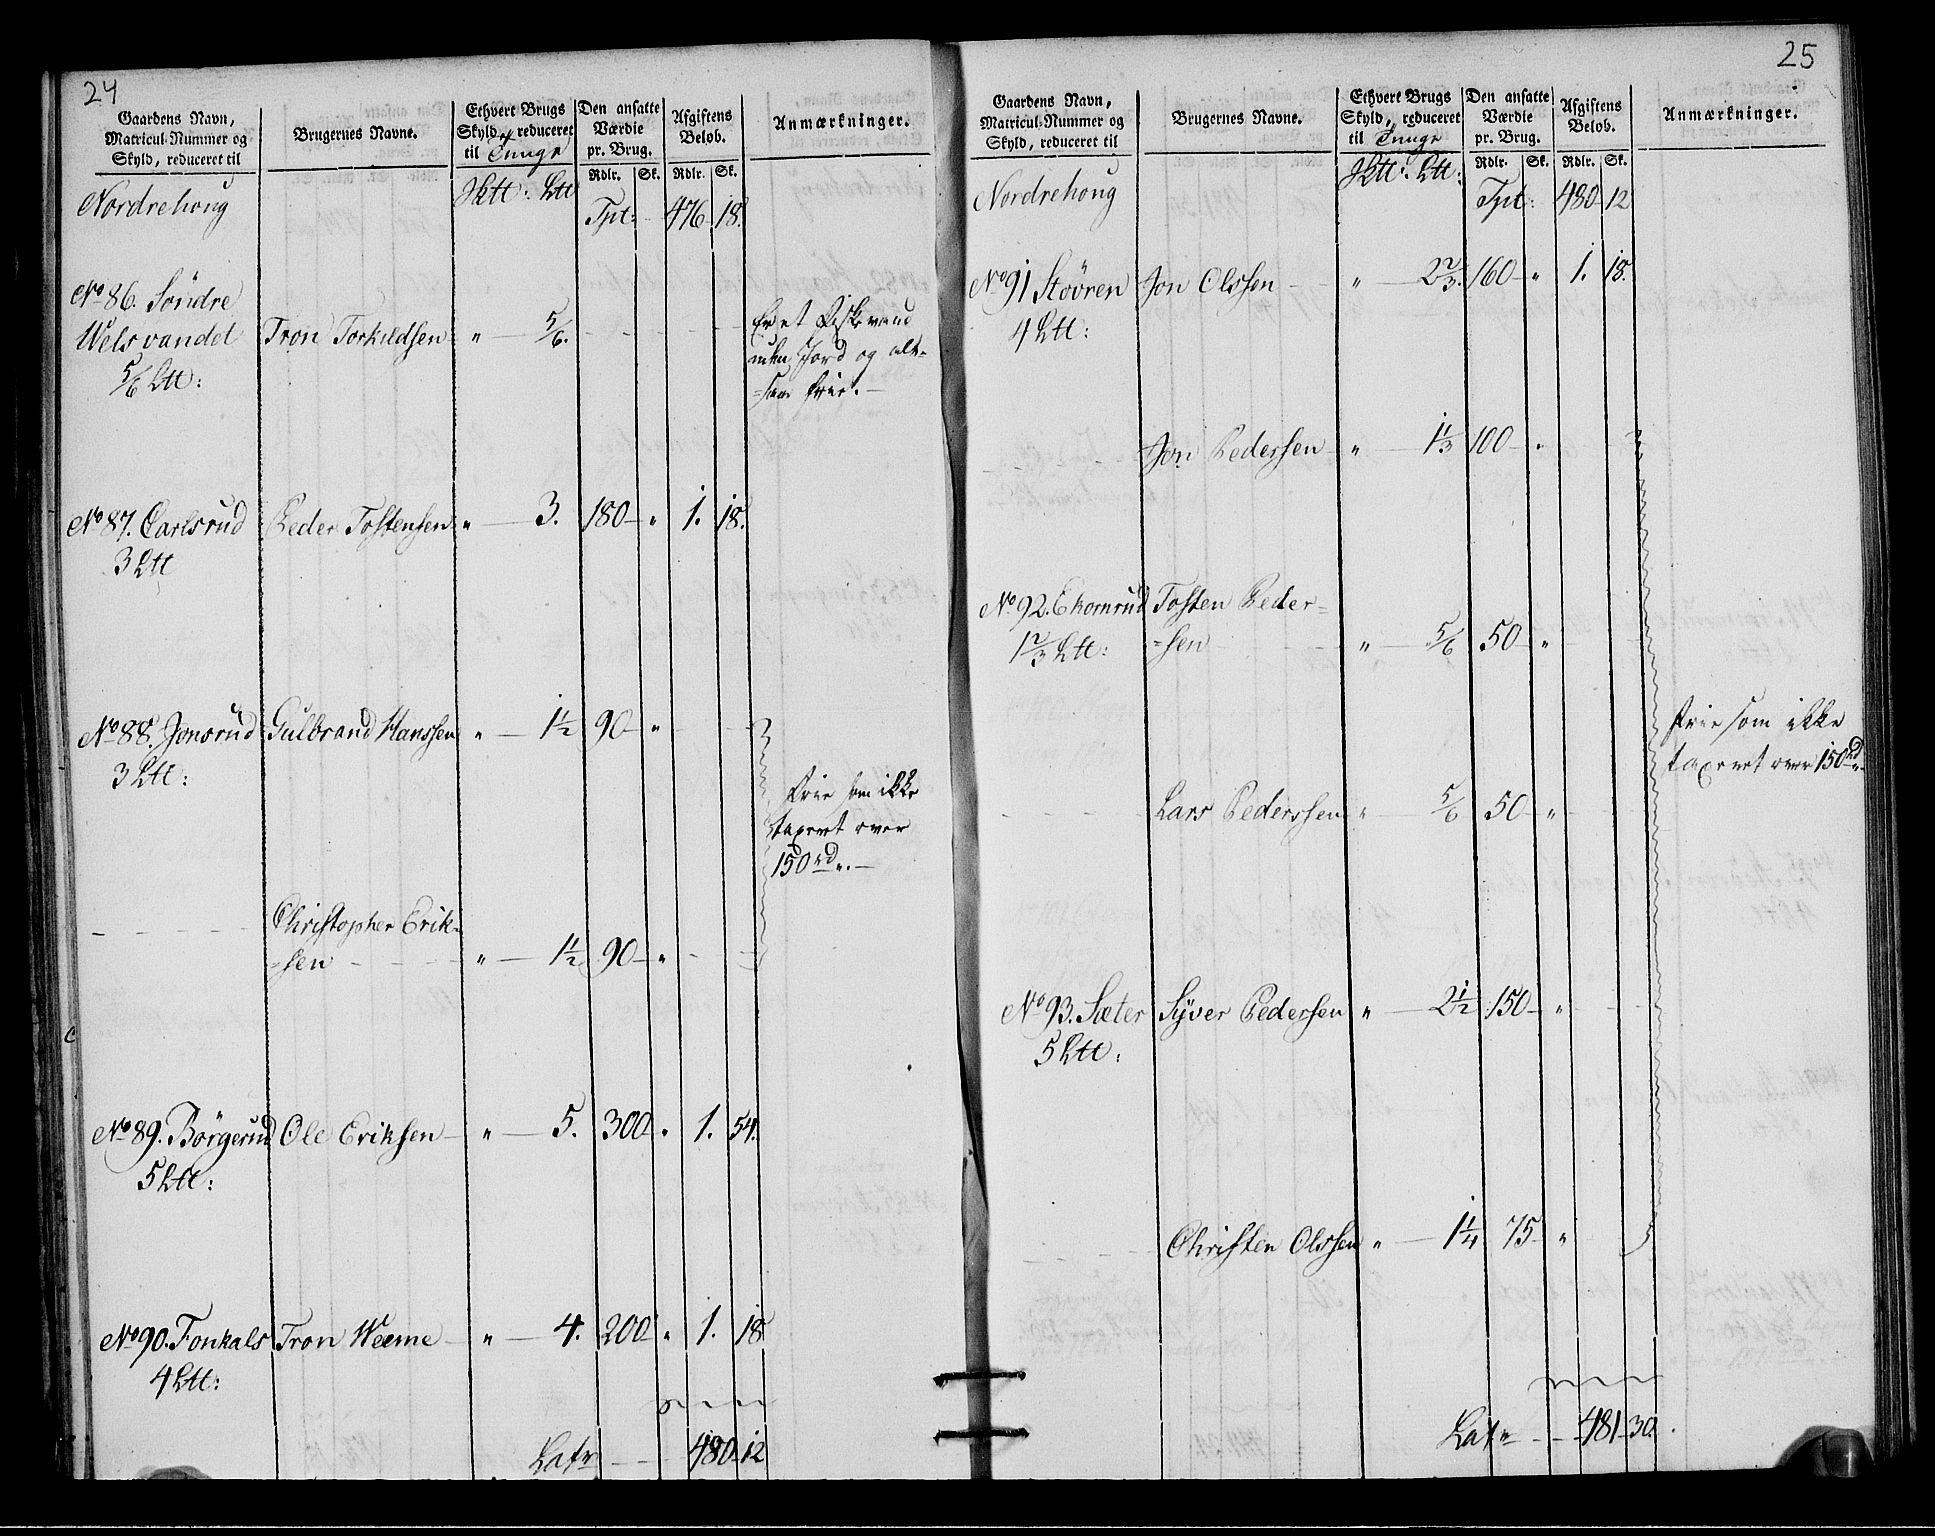 24
Gaardens Navn, Matricul-Nummer og Skyld, reduceret til | Brugernes Navne. | Ethvert Brugs Skyld, reduceret til Tunge | Den ansatte Værdie pr. Brug. | Afgiftens Beløb. | Anmærkninger.
Rdlr. | Sk. | Rdlr. | Sk.
Nordrehoug | Tpt: | 476 | 18.
No 86. Söndre
Welsvandet | Tron Torkildsen | " | 5/6. | Er et Fiskevand
5/6 Ltt: | uden Jord og alt-
=saa frie.
No 87. Carlsrud | Peder Tostensen | " | 3. | 180 | " | 1. | 18.
3 Ltt
No 88. Jonsrud | Gulbrand Hanssen | " | 1 1/2 | 90 | "
3 Ltt: | frie som ikke
taxeret over
150 rd".
Christopher Erik-
=sen | " | 1 1/2 | 90 | "
No 89. Börgerud | Ole Eriksen | " | 5. | 300 | " | 1. | 54.
5 Ltt:
No 90. Fonkals | Tron Weeme | " | 4. | 200 | " | 1. | 18
4 Ltt:
Latr | 480 | 12
25
Gaardens Navn, Matricul-Nummer og Skyld, reduceret til | Brugernes Navne. | Ethvert Brugs Skyld, reduceret til Tunge | Den ansatte Værdie pr. Brug. | Afgiftens Beløb. | Anmærkninger.
Rdlr. | Sk. | Rdlr. | Sk.
Nordrehoug | Tpt: | 480 | 12
No 91 Stövren | Jon Olssen | " | 2 2/3. | 160 | " | 1. | 18.
4 Ltt:
Jon Pederssen | " | 1 1/3 | 100 | "
No 92. Ekornrud | Tosten Peder=
1 2/3 Ltt: | =sen | " | 5/6 | 50 | "
frie som ikke
taxeret over 150 rd".
Lars Pederssen | " | 5/6 | 50 | "
No 93. Sæter | Syver Pedersen | " | 2 1/2 | 150 | "
5 Ltt:
Christen Olssen | " | 1 1/4 | 75 | "
Latr | 481 | 30.